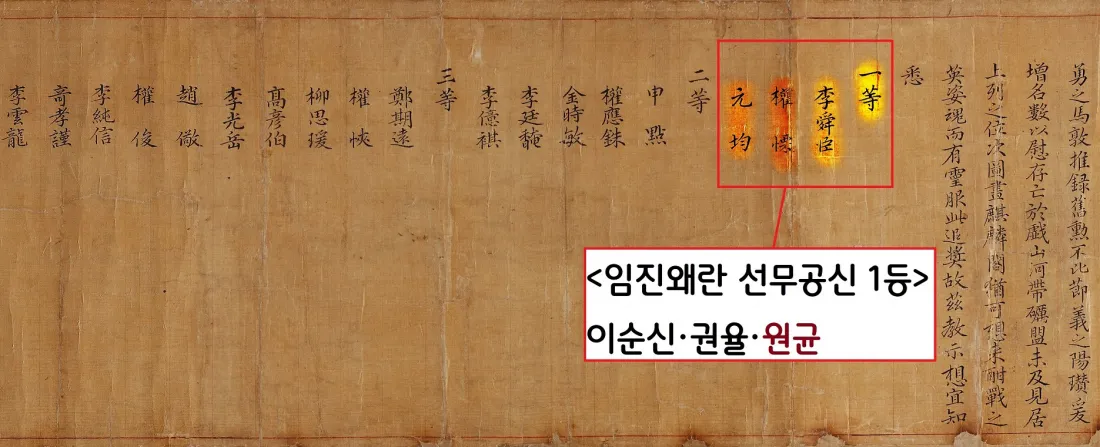 勇之馬敦推録舊勳不比節義之陽瓚爰
增名數以慰存亡於戲山河帶礪盟未及見居
上列之位次圖畫麒麟閣猶可想来酣戰之
英姿魂而有靈服此追奬故茲敎示想宜知
悉
一等
李舜臣
權慄
元均
二等
申點
權應銖
金時敏
李廷馣
李億祺
三等
鄭期遠
權悏
柳思瑗
高彦伯
李光岳
趙儆
權俊
李純信
奇孝謹
李雲龍
<임진왜란 선무공신 1등>
이순신·권율·원균